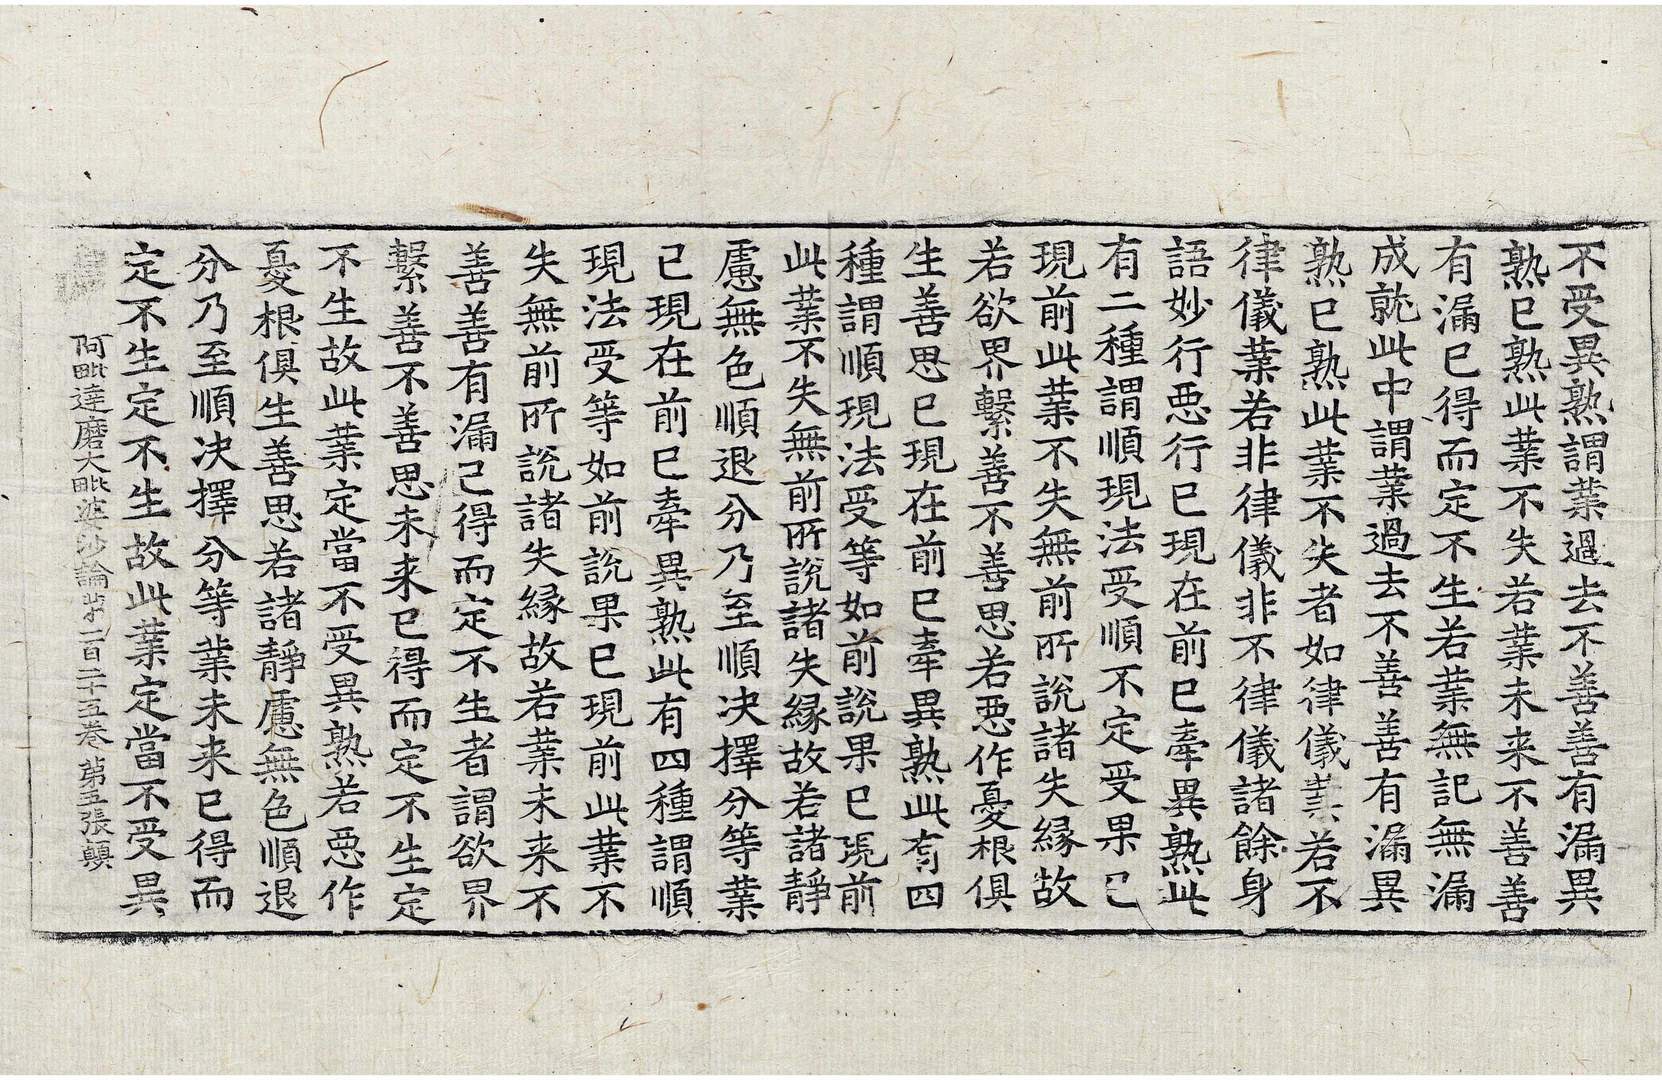 不受異熟謂業過去不善善有漏異
熟已熟此業不失若業未来不善善
有漏已得而定不生若業無記無漏
成就此中謂業過去不善善有漏異
熟已熟此業不失者如律儀業若不
律儀業若非律儀非不律儀諸餘身
語妙行惡行已現在前已牽異熟此
有二種謂順現法受順不定受果已
現前此業不失無前所說諸失縁故
若欲界繫善不善思若惡作憂根俱
生善思已現在前已牽異熟此有四
種謂順現法受等如前說果已現前
此業不失無前所說諸失縁故若諸靜
慮無色順退分乃至順决擇分等業
已現在前已牽異熟此有四種謂順
現法受等如前說果已現前此業不
失無前所說諸失縁故若業未来不
善善有漏已得而定不生者謂欲界
繫善不善思未来已得而定不生定
不生故此業定當不受異熟若惡作
憂根俱生善思若諸靜慮無色順退
分乃至順决擇分等業未来已得而
定不生定不生故此業定當不受異
阿毗達磨大毗婆沙論苐一百二十五卷 第五張 顛